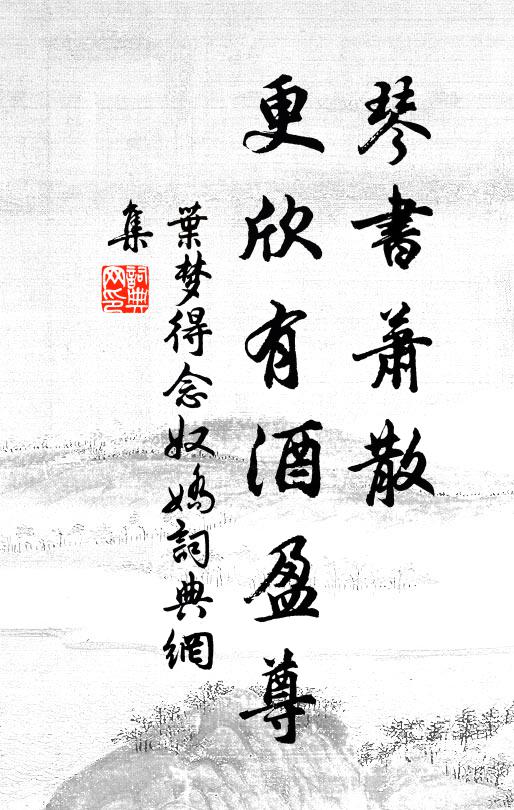 琴書蕭散
更欣有酒盈尊
葉梦得念奴嬌詞典網
集
詞典网印